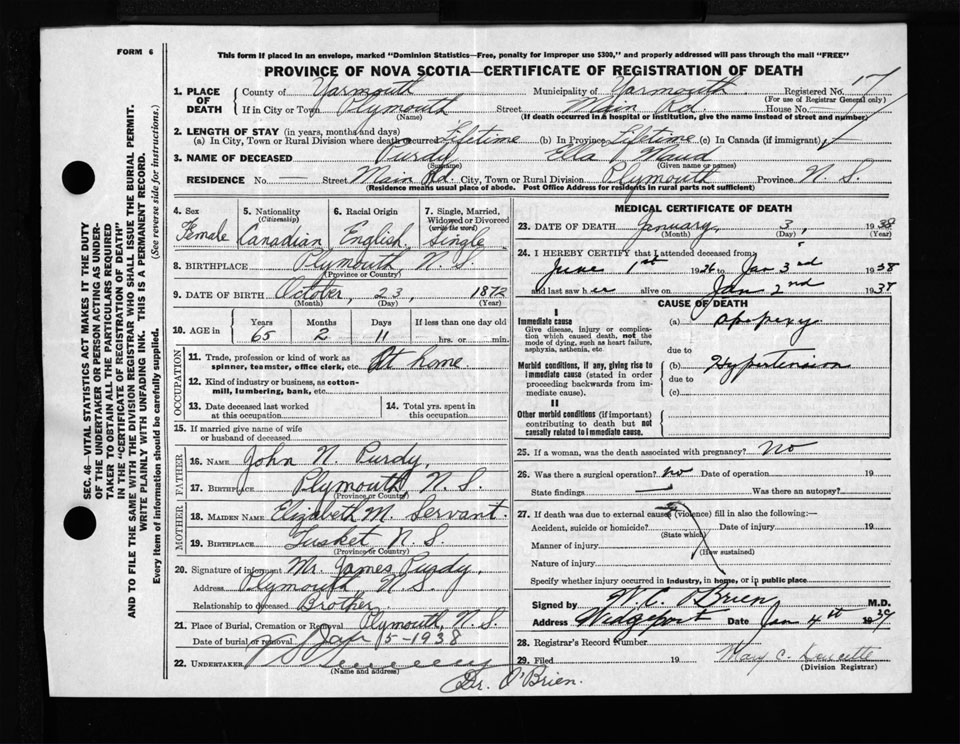 FORM 6
This form if placed in an envelope, marked "Dominion Statistics—Free, penalty for improper use $300," and properly addressed will pass through the mail "FREE"
PROVINCE OF NOVA SCOTIA—CERTIFICATE OF REGISTRATION OF DEATH
1. PLACE OF DEATH
County of Yarmouth Municipality of Yarmouth Registered No. 17
(For use of Registrar General only)
If in City or Town Plymouth Street Main Rd. House No. —
(Name) (If death occurred in a hospital or institution, give the name instead of street and number)
2. LENGTH OF STAY (in years, months and days)
(a) In City, Town or Rural Division where death occurred Lifetime (b) In Province Lifetime (c) In Canada (if immigrant)
3. NAME OF DECEASED Purdy Ella Maud
(Surname) (Given name or names)
RESIDENCE No. — Street Main Rd. City, Town or Rural Division Plymouth Province N. S.
(Residence means usual place of abode. Post Office Address for residents in rural parts not sufficient)
4. Sex Female
5. Nationality (Citizenship) Canadian
6. Racial Origin English
7. Single, Married, Widowed or Divorced (write the word) Single
8. BIRTHPLACE Plymouth N. S.
(Province or Country)
9. DATE OF BIRTH October, 23, 1872
(Month) (Day) (Year)
10. AGE in Years Months Days If less than one day old
65 2 11 hrs. or min.
OCCUPATION
11. Trade, profession or kind of work as spinner, teamster, office clerk, etc. At home
12. Kind of industry or business, as cotton-mill, lumbering, bank, etc.
13. Date deceased last worked at this occupation
14. Total yrs. spent in this occupation
15. If married give name of wife or husband of deceased
FATHER
16. Name John N. Purdy,
17. Birthplace Plymouth, N. S.
(Province or Country)
MOTHER
18. Maiden Name Elizabeth M. Servant.
19. Birthplace Tusket N. S.
(Province or Country)
20. Signature of informant Mr. James Purdy,
Address Plymouth N. S.
Relationship to deceased Brother.
21. Place of Burial, Cremation or Removal Plymouth, N. S.
Date of burial or removal Jan 5-1938
22. UNDERTAKER
(Name and address)
Dr. O'Brien.
MEDICAL CERTIFICATE OF DEATH
23. DATE OF DEATH January, 3, 1938
(Month) (Day) (Year)
24. I HEREBY CERTIFY that I attended deceased from
June 1st 1936 to Jan 3rd 1938
and last saw her alive on Jan 2nd 1938
CAUSE OF DEATH
I
Immediate cause
Give disease, injury or complication which caused death, not the mode of dying, such as heart failure, asphyxia, asthenia, etc.
(a) Apoplexy
due to
Morbid conditions, if any, giving rise to immediate cause (stated in order proceeding backwards from immediate cause).
(b) Hypertension
due to
(c)
II
Other morbid conditions (if important) contributing to death but not causally related to immediate cause.
25. If a woman, was the death associated with pregnancy? No
26. Was there a surgical operation? no Date of operation 19
State findings — Was there an autopsy?
27. If death was due to external causes (violence) fill in also the following:—
Accident, suicide or homicide? Date of injury 19
(State which)
Manner of injury
(How sustained)
Nature of injury
Specify whether injury occurred in industry, in home, or in public place
Signed by W. C. O'Brien M.D.
Address Wedgeport Date Jan 4th 19
28. Registrar's Record Number
29. Filed 19 Mary C. Doucette
(Division Registrar)
SEC. 46—VITAL STATISTICS ACT MAKES IT THE DUTY
OF THE UNDERTAKER OR PERSON ACTING AS UNDER-
TAKER TO OBTAIN ALL THE PARTICULARS REQUIRED
IN THE "CERTIFICATE OF REGISTRATION OF DEATH"
AND TO FILE THE SAME WITH THE DIVISION REGISTRAR WHO SHALL ISSUE THE BURIAL PERMIT.
WRITE PLAINLY WITH UNFADING INK. THIS IS A PERMANENT RECORD.
Every item of information should be carefully supplied. (See reverse side for instructions.)